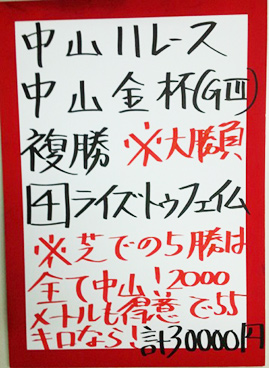 中山11レース
中山金杯(GⅢ)
複勝 ※大勝負
4 ライズトゥフェイム
※芝での5勝は
全て中山!2000
メートルも得意で55
キロなら!計30000円